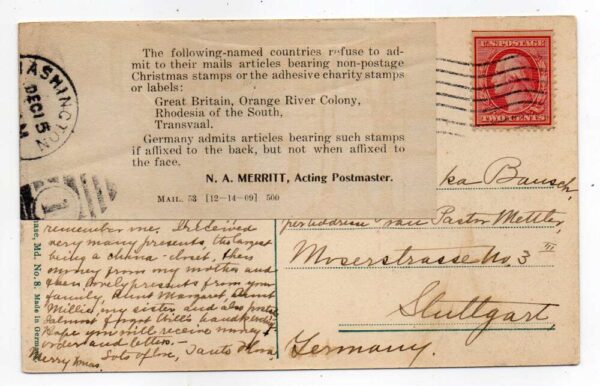 WASHINGTON
DEC 15
The following-named countries refuse to ad-
mit to their mails articles bearing non-postage
Christmas stamps or the adhesive charity stamps
or labels:
Great Britain, Orange River Colony,
Rhodesia of the South,
Transvaal.
Germany admits articles bearing such stamps
if affixed to the back, but not when affixed to
the face.
N. A. MERRITT, Acting Postmaster.
MAIL. 53 [12—14—09] 500
1
U.S. POSTAGE
TWO CENTS
ka Bausch,
per address van Pastor Mettler,
Moserstrasse No. 3 III
Stuttgart,
Germany.
remember me. I received
very many presents, the largest
being a china-closet, then
money from my mother and
then lovely presents from your
family, Aunt Margaret, Aunt
Millie, my sister and also
I almost forgot
Hope you will receive money
order and letter.—
Merry Xmas. Lots of love, Tante
ase, Md. No. 8. Made in Germany